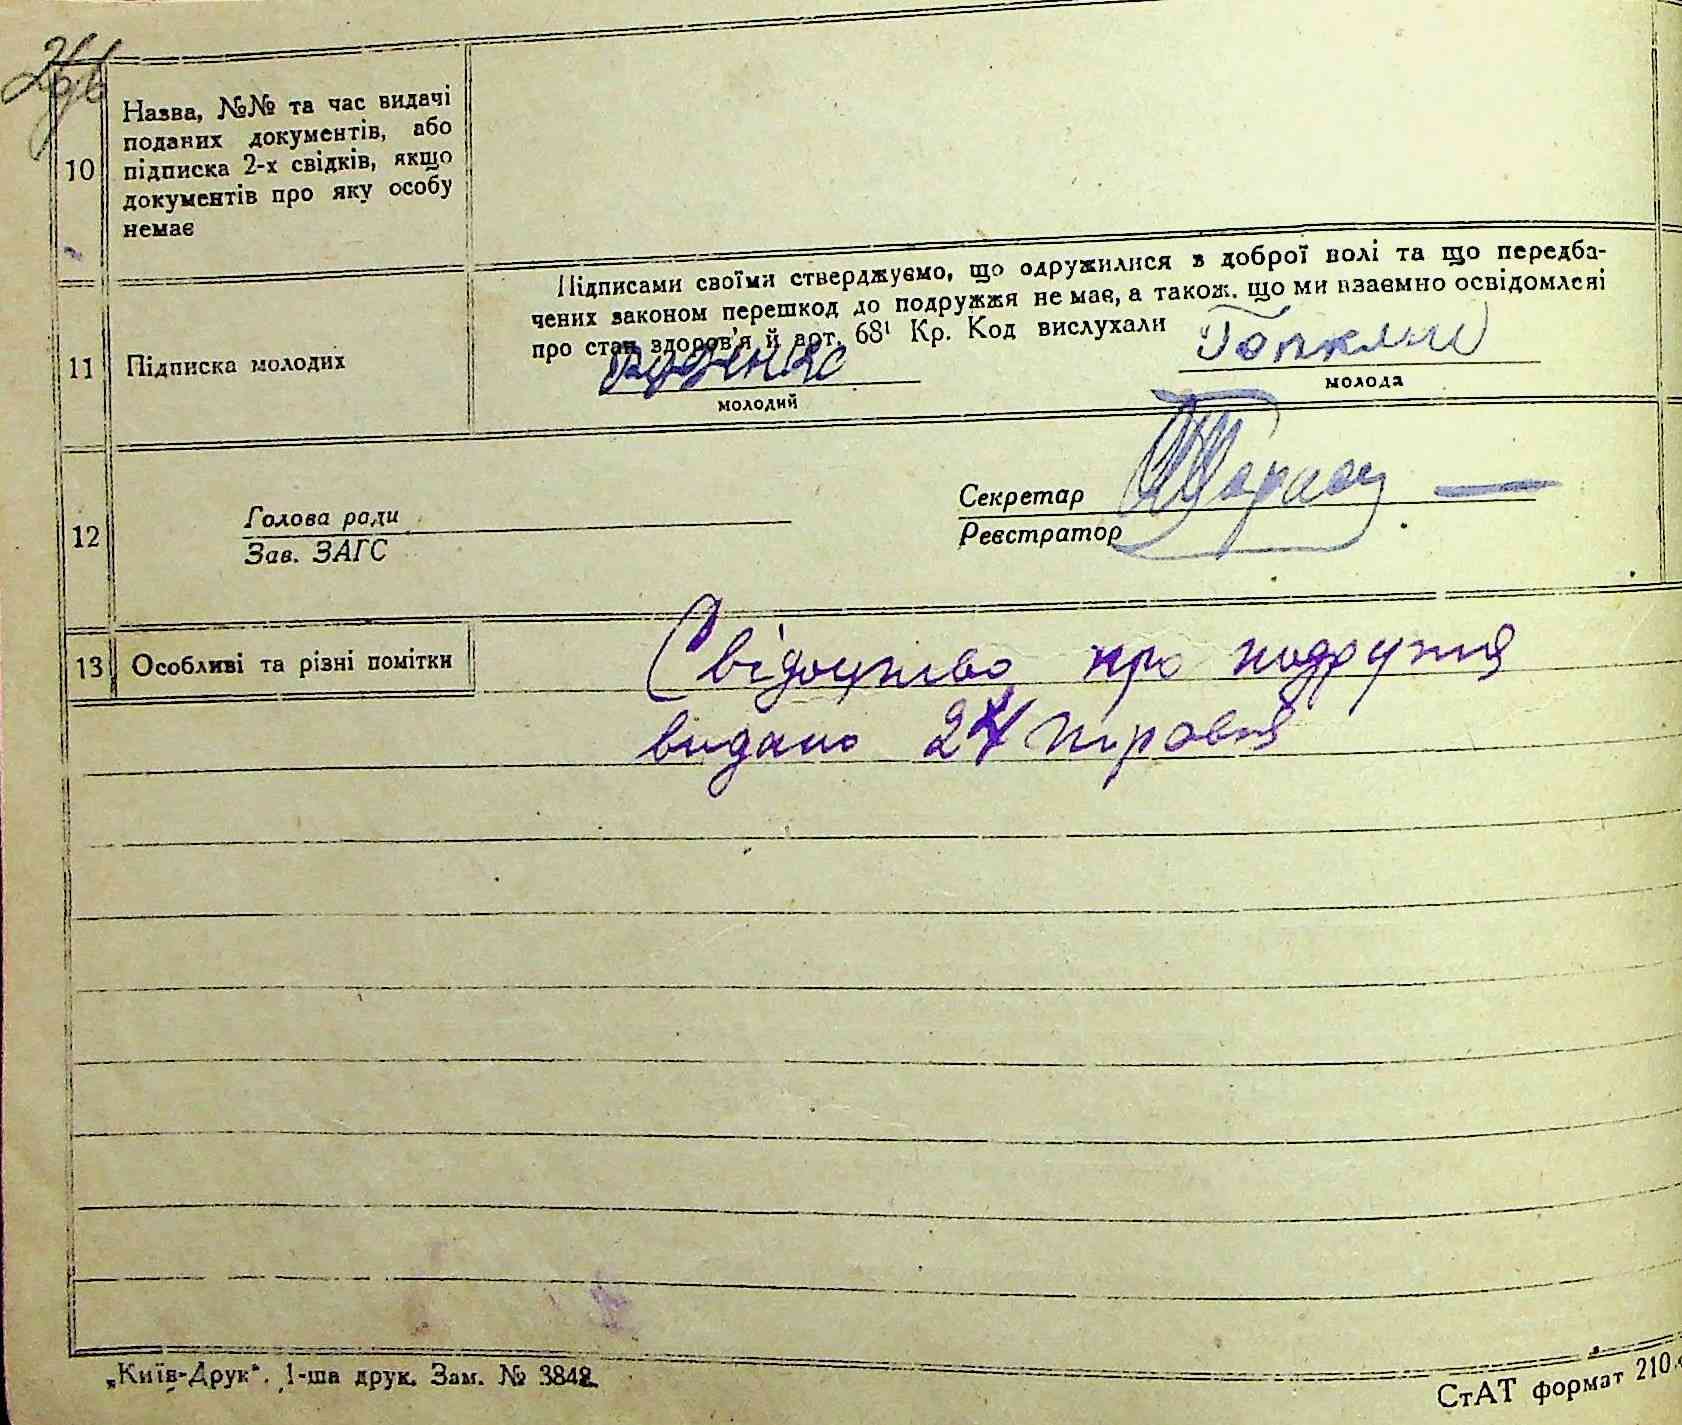 10
Назва, №№ та час видачі
поданих документів, або
підписка 2-х свідків, якщо
документів про яку особу
немає
11
Підписка молодих
Підписами своїми стверджуємо, що одружилися з доброї волі та що передба-
чених законом перешкод до подружжя не має, а також, що ми взаємно освідомлені
про стан здоров'я й арт. 68¹ Кр. Код вислухали
молодий
молода
12
Голова ради
Зав. ЗАГС
Секретар
Реєстратор
13
Особливі та різні помітки
Свідоцтво про подружжя
видано 24 травня
„Київ-Друк". 1-ша друк. Зам. № 3842
СтАТ формат 210